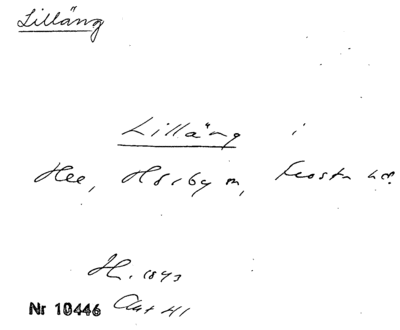 Lilläng
Lilläng i
Hee, Hörby sn, Frosta hd.
H. 1843
Nr 10446 Akt 41